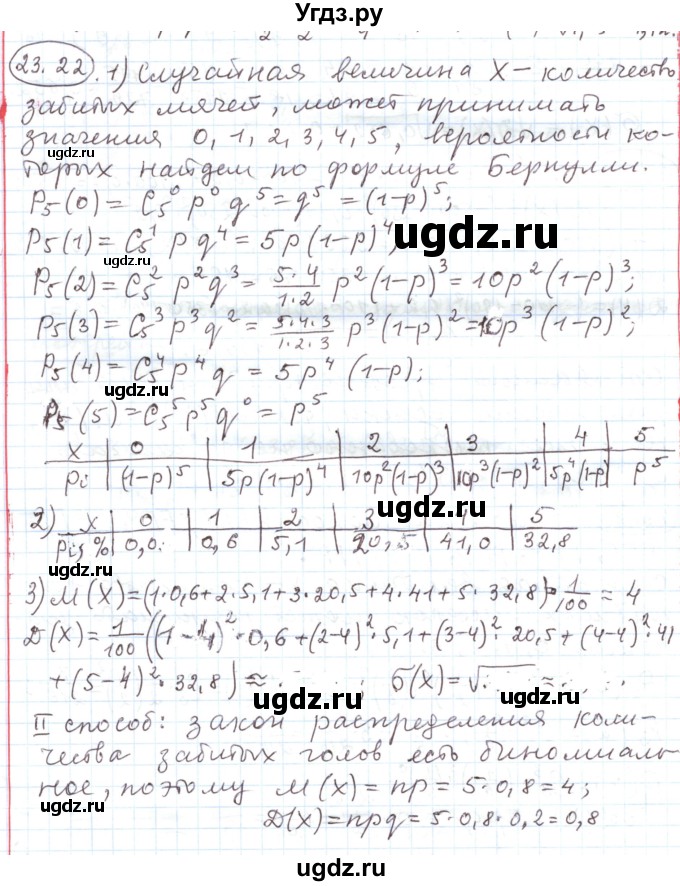 Угдз.ру
23.22. 1) Случайная величина X – количество
забитых мячей, может принимать
значения 0, 1, 2, 3, 4, 5, вероятности ко-
торых найдем по формуле Бернулли.
P₅(0) = C₅⁰ p⁰ q⁵ = q⁵ = (1-p)⁵;
P₅(1) = C₅¹ p q⁴ = 5p(1-p)⁴;
P₅(2) = C₅² p² q³ = 5·4/1·2 p²(1-p)³ = 10p²(1-p)³;
P₅(3) = C₅³ p³ q² = 5·4·3/1·2·3 p³(1-p)² = 10p³(1-p)²;
P₅(4) = C₅⁴ p⁴ q = 5p⁴(1-p);
P₅(5) = C₅⁵ p⁵ q⁰ = p⁵
X | 0 | 1 | 2 | 3 | 4 | 5
Pi | (1-p)⁵ | 5p(1-p)⁴ | 10p²(1-p)³ | 10p³(1-p)² | 5p⁴(1-p) | p⁵
2) X | 0 | 1 | 2 | 3 | 4 | 5
Pi, % | 0,0 | 0,6 | 5,1 | 20,5 | 41,0 | 32,8
3) M(X) = (1·0,6+2·5,1+3·20,5+4·41+5·32,8)·1/100 ≈ 4
D(X) = 1/100((1-4)²·0,6+(2-4)²·5,1+(3-4)²·20,5+(4-4)²·41
+(5-4)²·32,8) ≈ ; б(X) = √ ≈
II способ: закон распределения коли-
чества забитых голов есть биномиаль-
ное, поэтому M(X) = np = 5·0,8 = 4;
D(X) = npq = 5·0,8·0,2 = 0,8
ugdz.ru
ugdz.ru
ugdz.ru
ugdz.ru
ugdz.ru
ugdz.ru
ugdz.ru
ugdz.ru
ugdz.ru
ugdz.ru
ugdz.ru
ugdz.ru
ugdz.ru